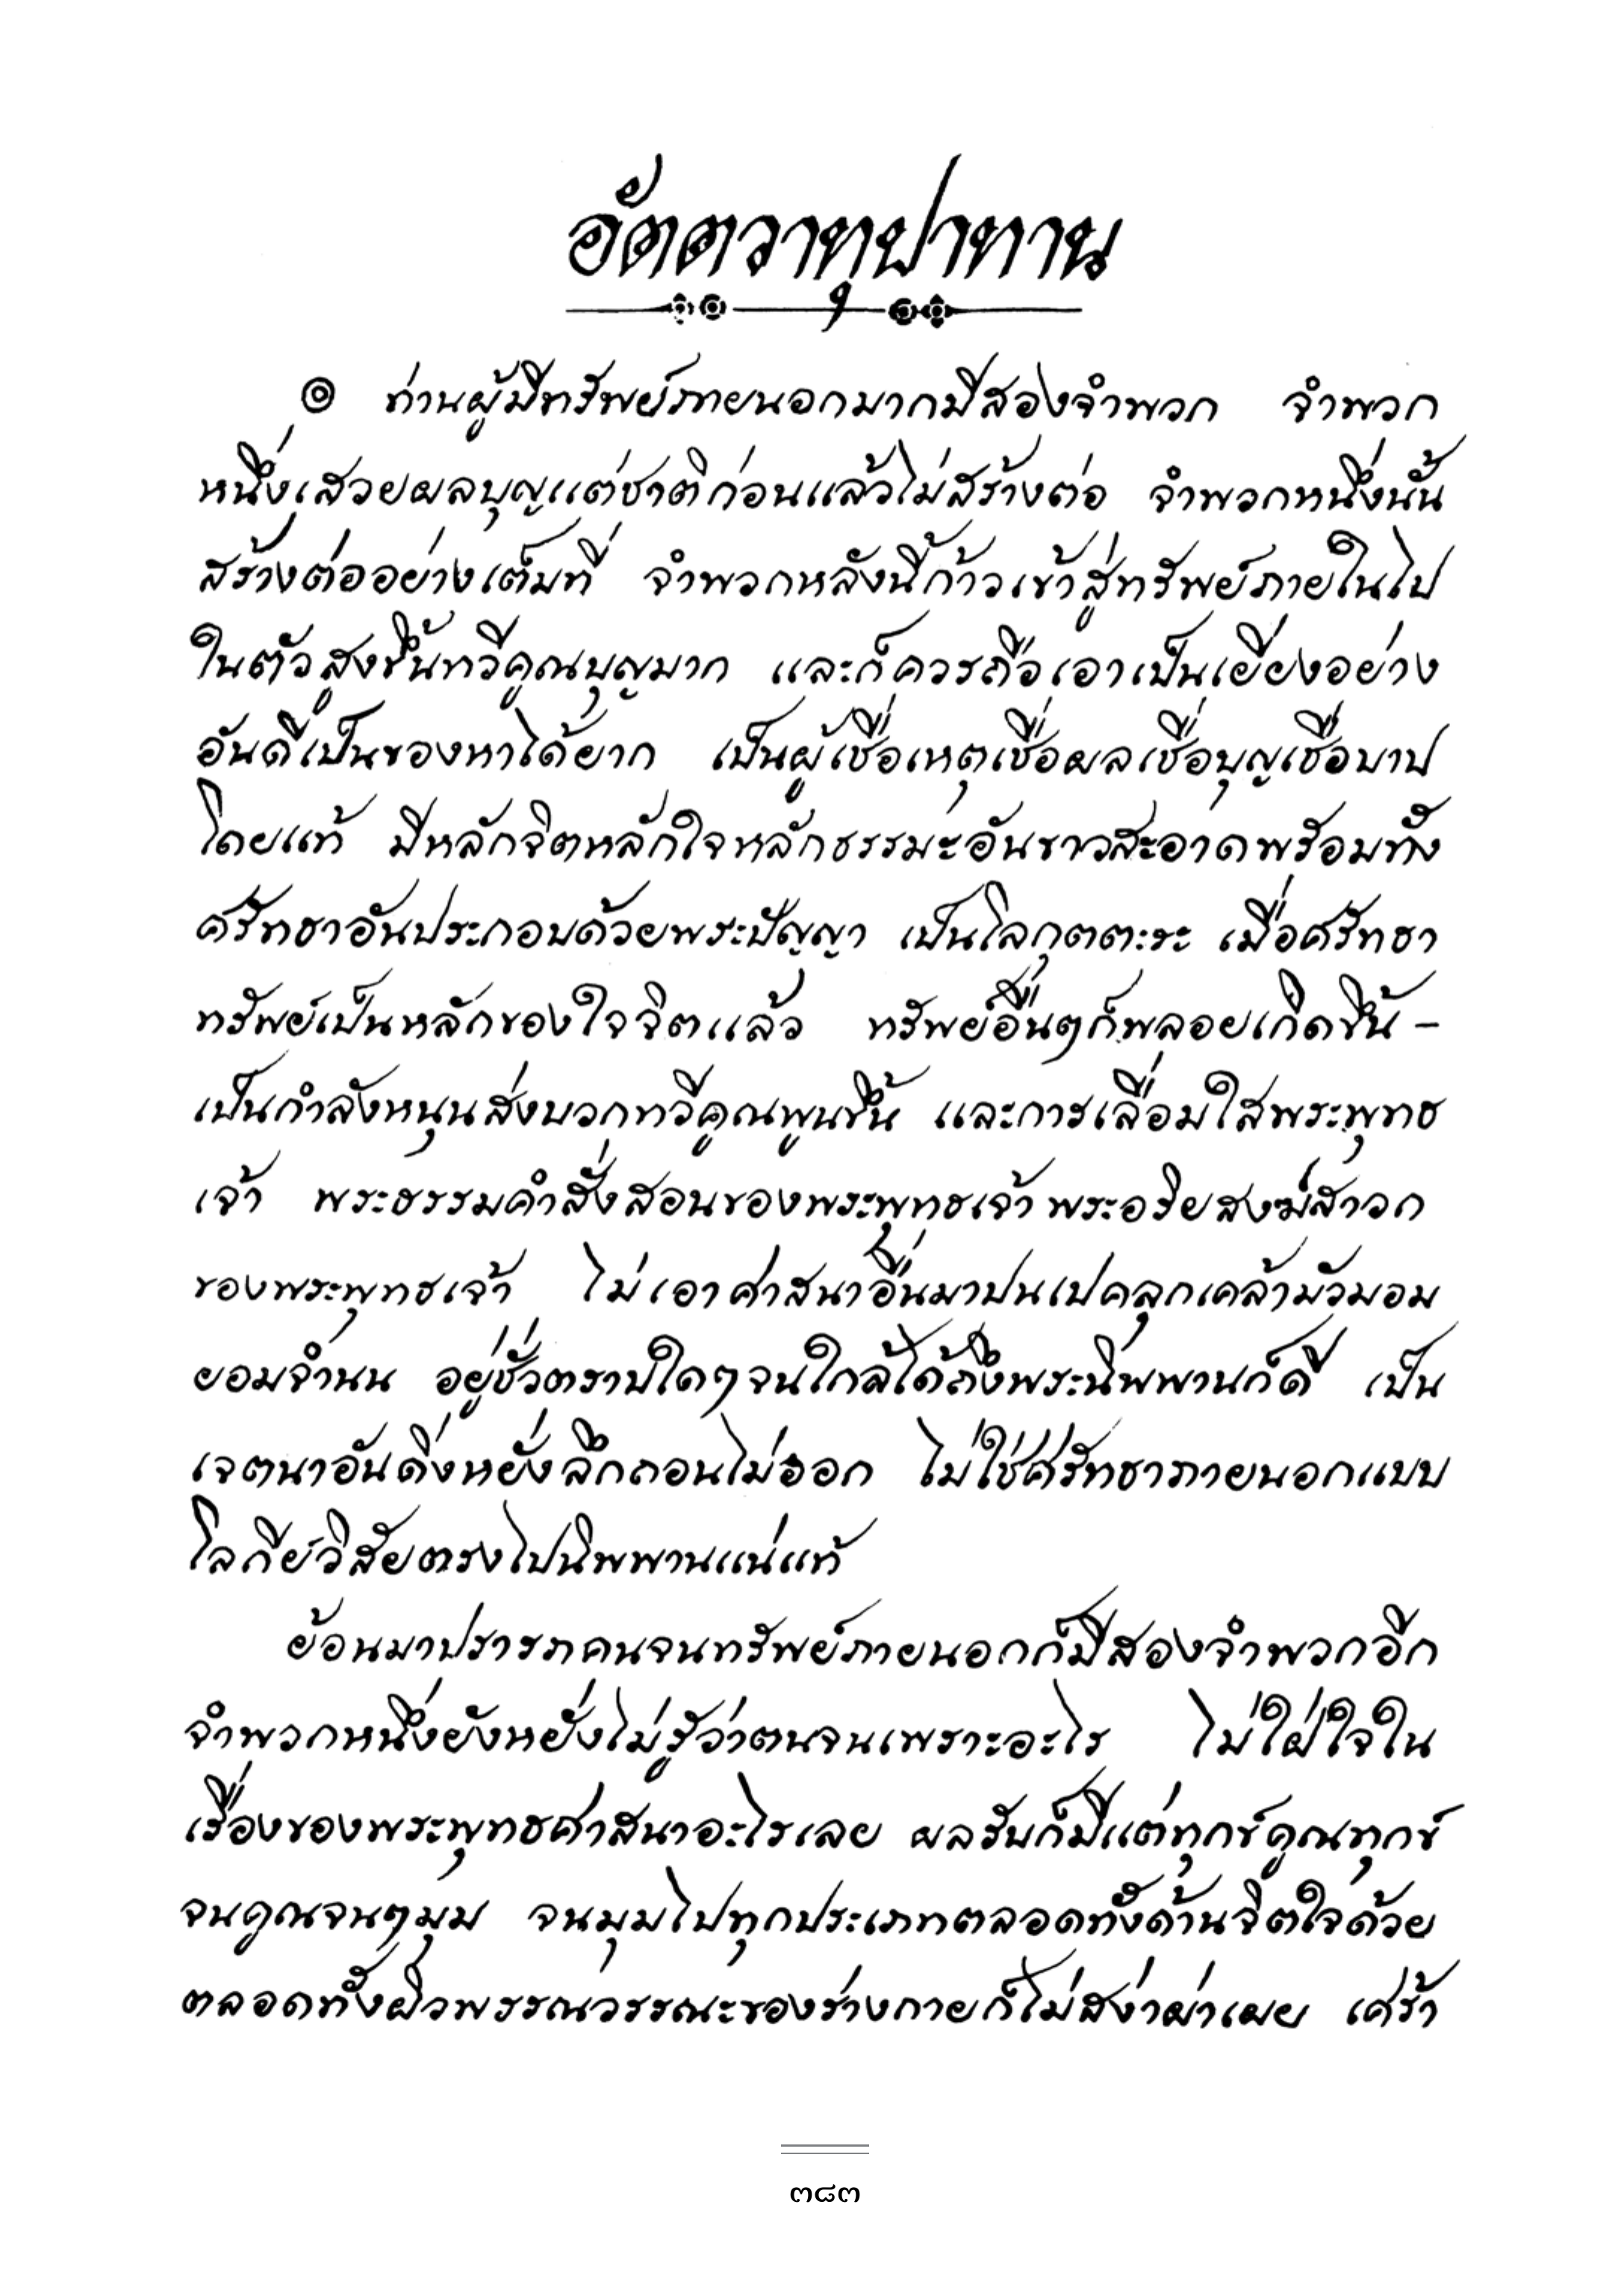 อัตตวาทุปาทาน
๏ ท่านผู้มีทรัพย์ภายนอกมากมีสองจำพวก จำพวก
หนึ่งเสวยผลบุญแต่ชาติก่อนแล้วไม่สร้างต่อ จำพวกหนึ่งนั้น
สร้างต่ออย่างเต็มที่ จำพวกหลังนี้ก้าวเข้าสู่ทรัพย์ภายในไป
ในตัวสูงขึ้นทวีคูณบุญมาก และก็ควรถือเอาเป็นเยี่ยงอย่าง
อันดีเป็นของหาได้ยาก เป็นผู้เชื่อเหตุเชื่อผลเชื่อบุญเชื่อบาป
โดยแท้ มีหลักจิตหลักใจหลักธรรมะอันขาวสะอาดพร้อมทั้ง
ศรัทธาอันประกอบด้วยพระปัญญา เป็นโลกุตตะระ เมื่อศรัทธา
ทรัพย์เป็นหลักของใจจิตแล้ว ทรัพย์อื่นๆก็พลอยเกิดขึ้น-
เป็นกำลังหนุนส่งบวกทวีคูณพูนขึ้น และการเลื่อมใสพระพุทธ
เจ้า พระธรรมคำสั่งสอนของพระพุทธเจ้า พระอริยสงฆ์สาวก
ของพระพุทธเจ้า ไม่เอาศาสนาอื่นมาปนเปคลุกเคล้ามัวมอม
ยอมจำนน อยู่ชั่วตราบใดๆจนใกล้ได้ถึงพระนิพพานก็ดี เป็น
เจตนาอันดิ่งหยั่งลึกถอนไม่ออก ไม่ใช่ศรัทธาภายนอกแบบ
โลกีย์วิสัยตรงไปนิพพานแน่แท้
ย้อนมาปรารภคนจนทรัพย์ภายนอกก็มีสองจำพวกอีก
จำพวกหนึ่งยังหยั่งไม่รู้ว่าตนจนเพราะอะไร ไม่ใฝ่ใจใน
เรื่องของพระพุทธศาสนาอะไรเลย ผลรับก็มีแต่ทุกข์คูณทุกข์
จนคูณจนๆมุม จนมุมไปทุกประเภทตลอดทั้งด้านจิตใจด้วย
ตลอดทั้งผิวพรรณวรรณะของร่างกายก็ไม่สง่าผ่าเผย เศร้า
๓๘๓